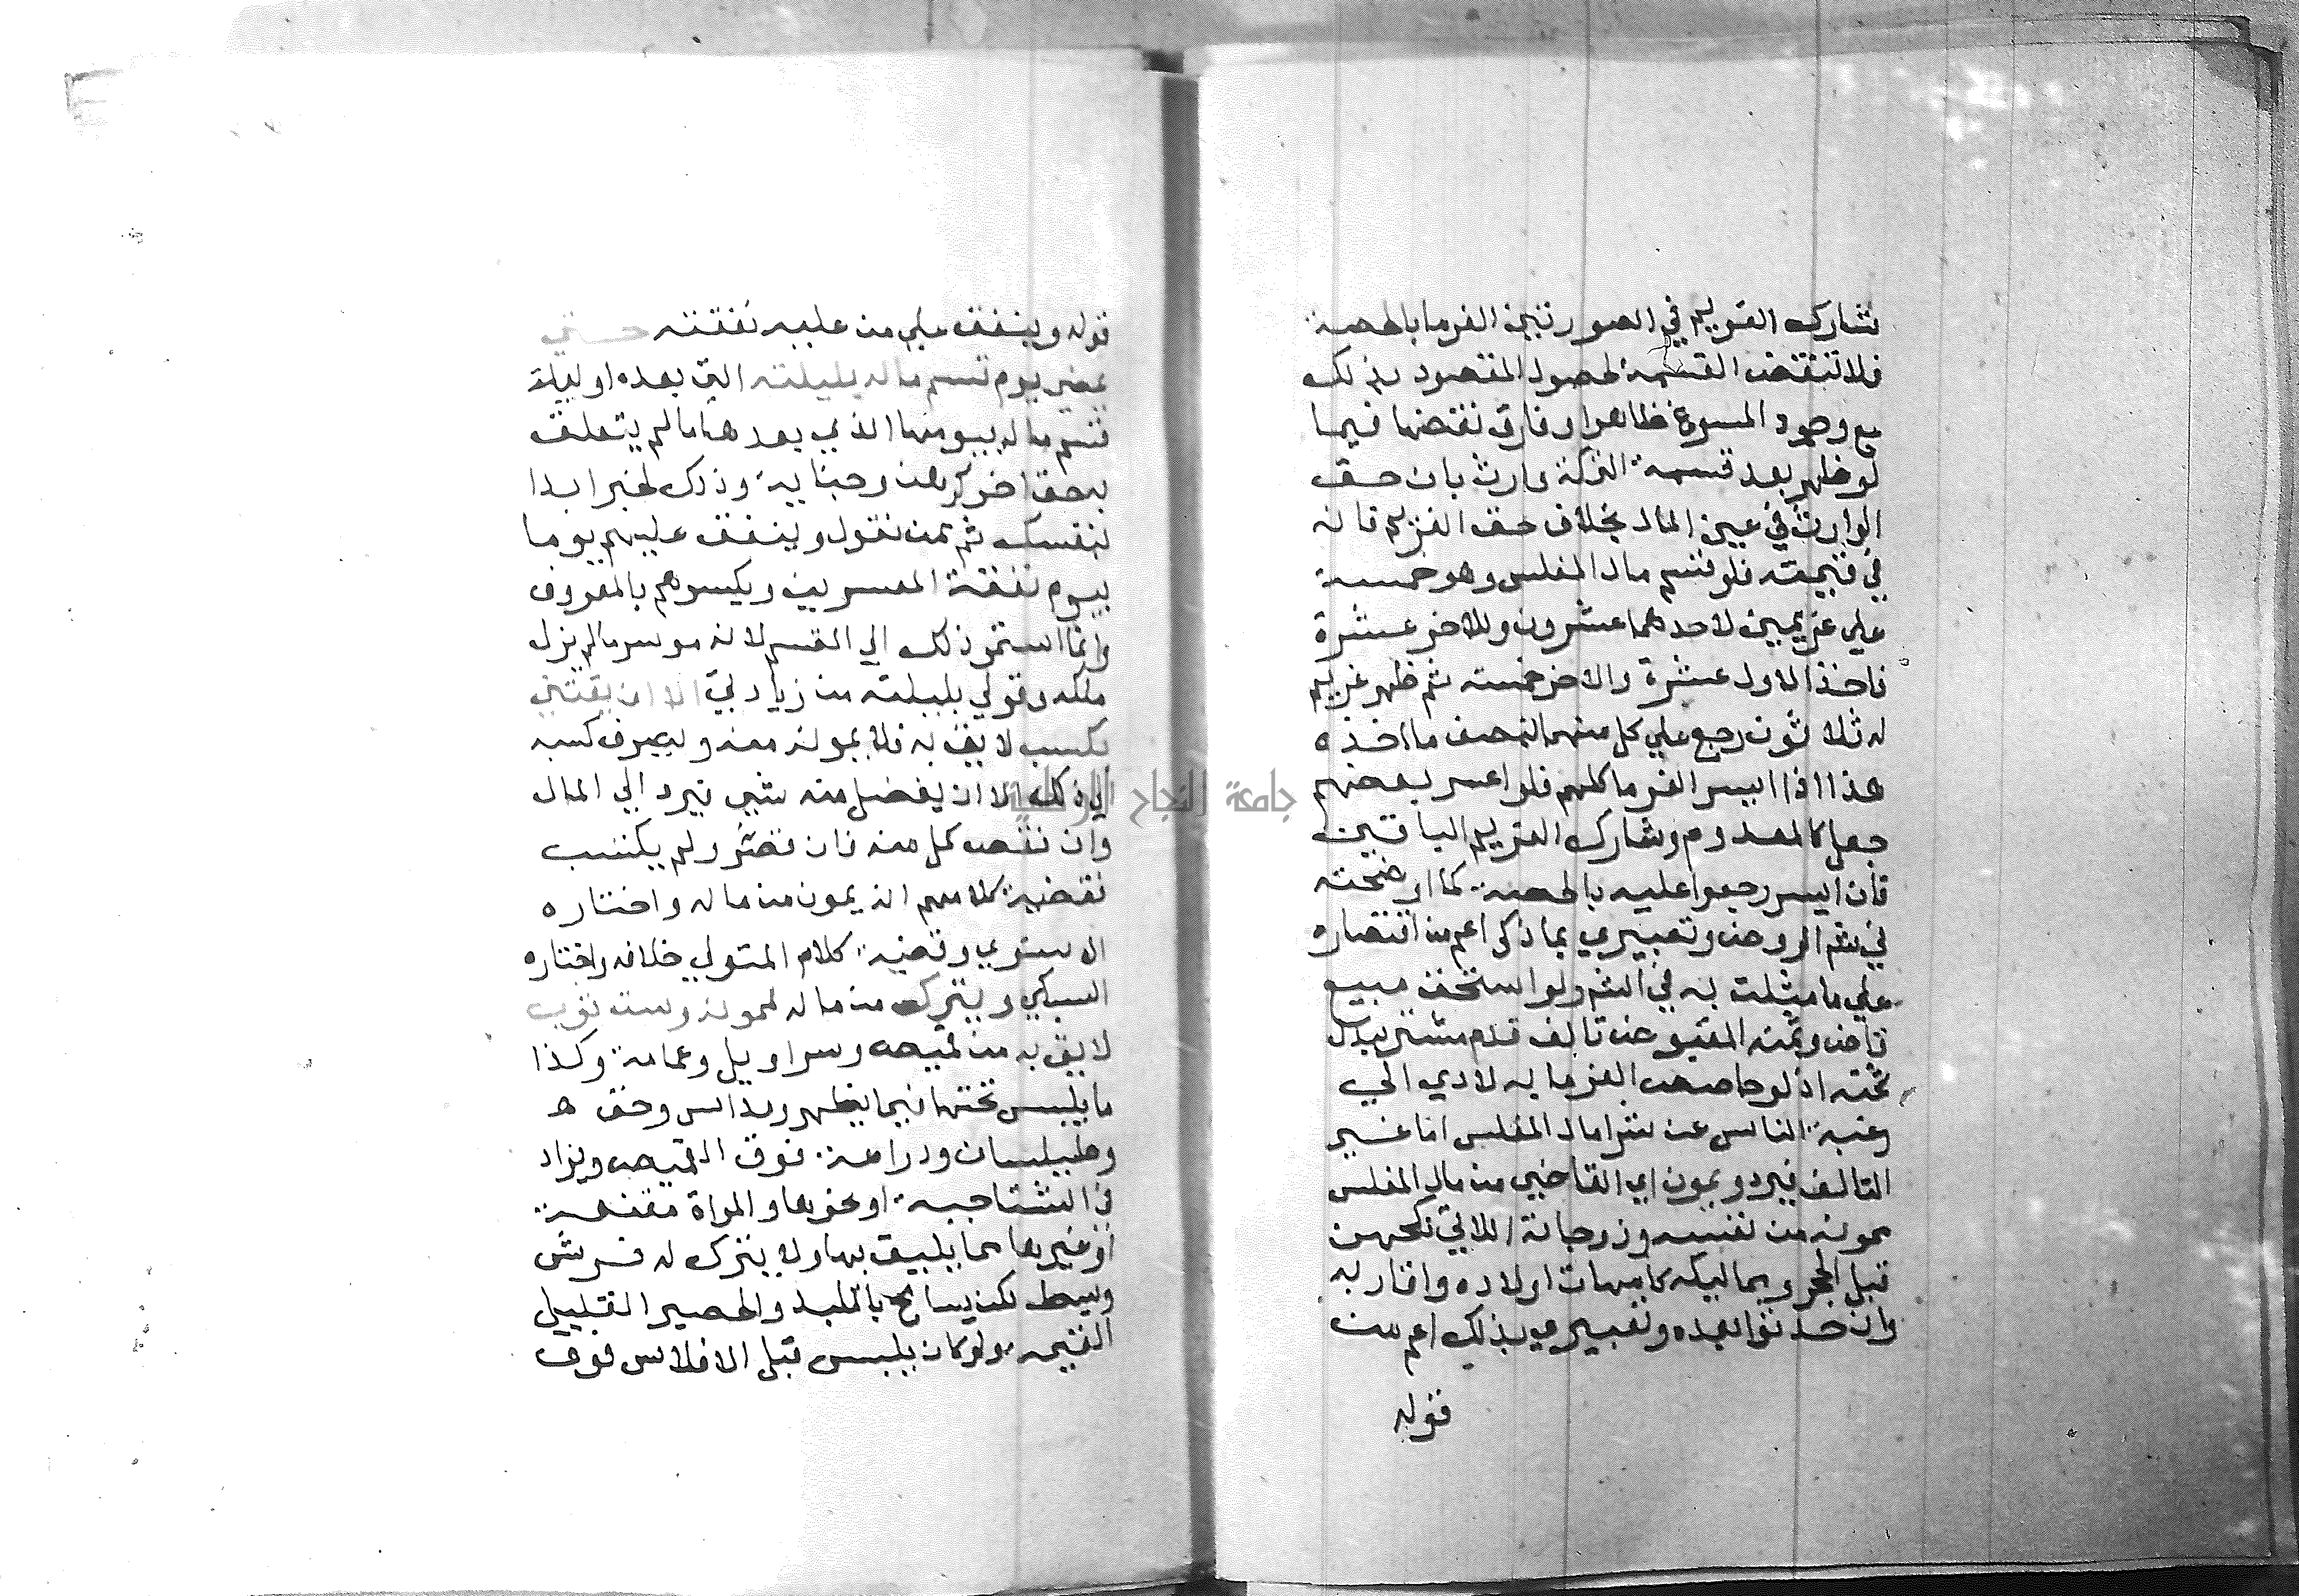 شارك الغريم في الصورتين الغرما بالحصة
فلا تنقض القسمة لحصول المقصود بذلك
مع وجود المسوغ ظاهرا وفارق نقضها فيما
لو ظهر بعد قسمة التركة وارث بان حق
الوارث في عين المال بخلاف حق الغريم فانه
في قيمته فلو قسم مال المفلس وهو خمسة
علي غريمين لاحدهما عشرون وللاخر عشرة
فاخذ الاول عشرة والاخر خمسة ثم ظهر غريم
له ثلاثون رجع علي كل منهما بنصف ما اخذه
هذا اذا ايسر الغرما كلهم فلو اعسر بعضهم
جعل كالمعدوم وشارك الغريم الباقين
فان ايسر رجعوا عليه بالحصة كما اوضحته
في شم الروض وتعبيري بما ذكر اعم من اقتصاره
علي ما مثلت به في الشم ولو استحق مبيع
قاض وثمنه المقبوض تالف قدم مشتر ببدل
ثمنه اذ لو حاصص الغرما به لادي الي
رغبة الناس عن شرا مال المفلس اما غير
التالف فيرد ويمون اي القاضي من مال المفلس
ممونه من نفسه وزوجاته اللاتي نكحهن
قبل الحجر ومماليكه كامهات اولاده واقاربه
وان حدثوا بعده وتعبيري بذلك اعم من
قوله
قوله وينفق علي من عليه نفقته حتي
يمضي يوم قسم ماله بليلته التي بعده او ليلة
قسم ماله بيومها الذي بعدها ما لم يتعلق
بحق اخر كرهن وجناية وذلك لخبر ابدا
بنفسك ثم بمن تعول وينفق عليهم يوما
بيوم نفقة المعسرين ويكسوهم بالمعروف
وانما استمر ذلك الي القسم لانه موسر ما لم يزل
ملكه وقولي بليلته من زيادتي الا ان يغتني
بكسب لايق به فلا يمونه منه ويصرف كسبه
في ذلك الا ان يفضل منه شي فيرد الي المال
وان نقص كمل منه فان قصر ولم يكتسب
فقضية كلامهم انه يمون من ماله واختاره
الاسنوي وقضية كلام المتولي خلافه واختاره
السبكي ويترك من ماله لممونه دست ثوب
لايق به من قميص وسراويل وعمامة وكذا
ما يلبس تحتها فيما يظهر ومداس وخف
وطيلسان ودراعة فوق القميص ويزاد
في الشتا جبة او نحوها والمراة مقنعة
او غيرها مما يليق بها ولا يترك له فرش
وبسط لكن يسامح باللبد والحصير القليل
القيمة ولو كان يلبس قبل الافلاس فوق
جامعة النجاح الوطنية